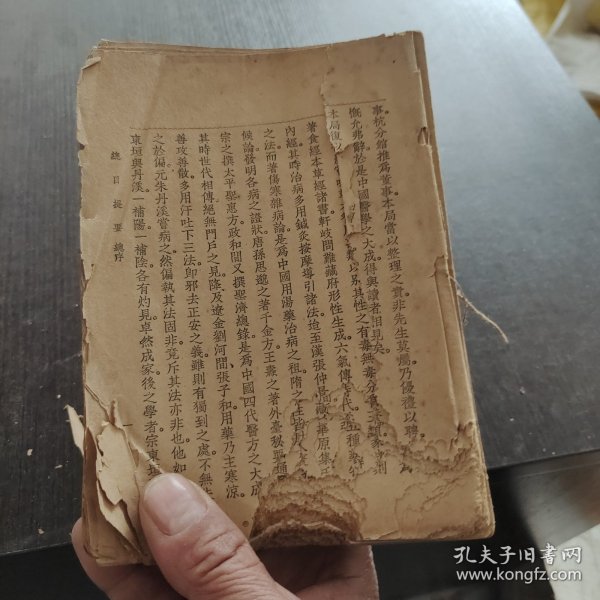 事杭分館推爲董事本局當以整理之責非先生莫屬乃優禮以聘
慨允弗辭於是中國醫學之大成得與讀者相見矣
本局復以
著食經本草經諸書軒岐問難藏府形性生成六氣傳
內經其時治病多用鍼灸按摩導引諸法迨至漢張仲
之法而著傷寒雜病論是爲中國用湯藥治病之祖隋之
候論發明各病之證狀唐孫思邈之著千金方王燾之著外臺秘要
宗之撰太平聖惠方政和間又撰聖濟總錄是爲中國四代醫方之大成
其時世代相傳絕無門戶之見降及遼金劉河間張子和用藥乃主寒涼
善攻善散多用汗吐下三法即邪去正安之義雖則有獨到之處不無
之於偏元朱丹溪嘗病之然偏執其法固非竟斥其法亦非也他如
東垣與丹溪一補陽一補陰各有灼見卓然成家後之學者宗東垣
總目提要 總序
一
孔夫子旧书网
www.kongfz.com